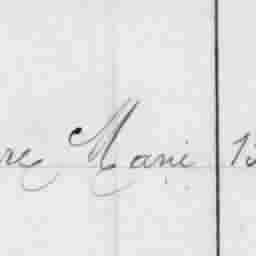 re Marie 13